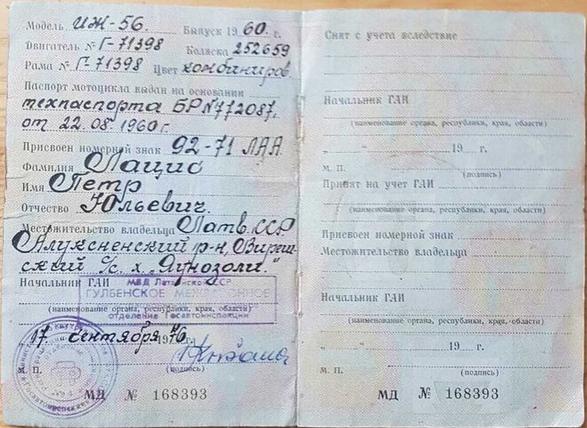 Модель ИЖ-56. Выпуск 1960. г.
Двигатель № Г-71398 Коляска 252659
Рама № Г-71398 Цвет комбиниров
Паспорт мотоцикла выдан на основании
техпаспорта БР№772087.
от 22.08.1960г.
Присвоен номерной знак 92-71 ЛАА
Фамилия Лацис
Имя Петр
Отчество Юльевич.
Местожительство владельца Латв.ССР
Алуксненский р-н, Виреш-
ский с/с. х. "Яунозоли."
Начальник ГАИ
МВД Латвийской ССР
ГУЛБЕНСКОЕ МЕЖРАЙОННОЕ
(наименование органа, республики, края, области)
отделение Госавтоинспекции
17 сентября 1976
М. П. (подпись)
МД № 168393
Снят с учета вследствие
Начальник ГАИ
(наименование органа, республики, края, области)
" " 19 г.
М. П. (подпись)
Принят на учет ГАИ
(наименование органа, республики, края, области)
Присвоен номерной знак
Местожительство владельца
Начальник ГАИ
(наименование органа, республики, края, области)
" " 19 г.
М. П. (подпись)
МД № 168393